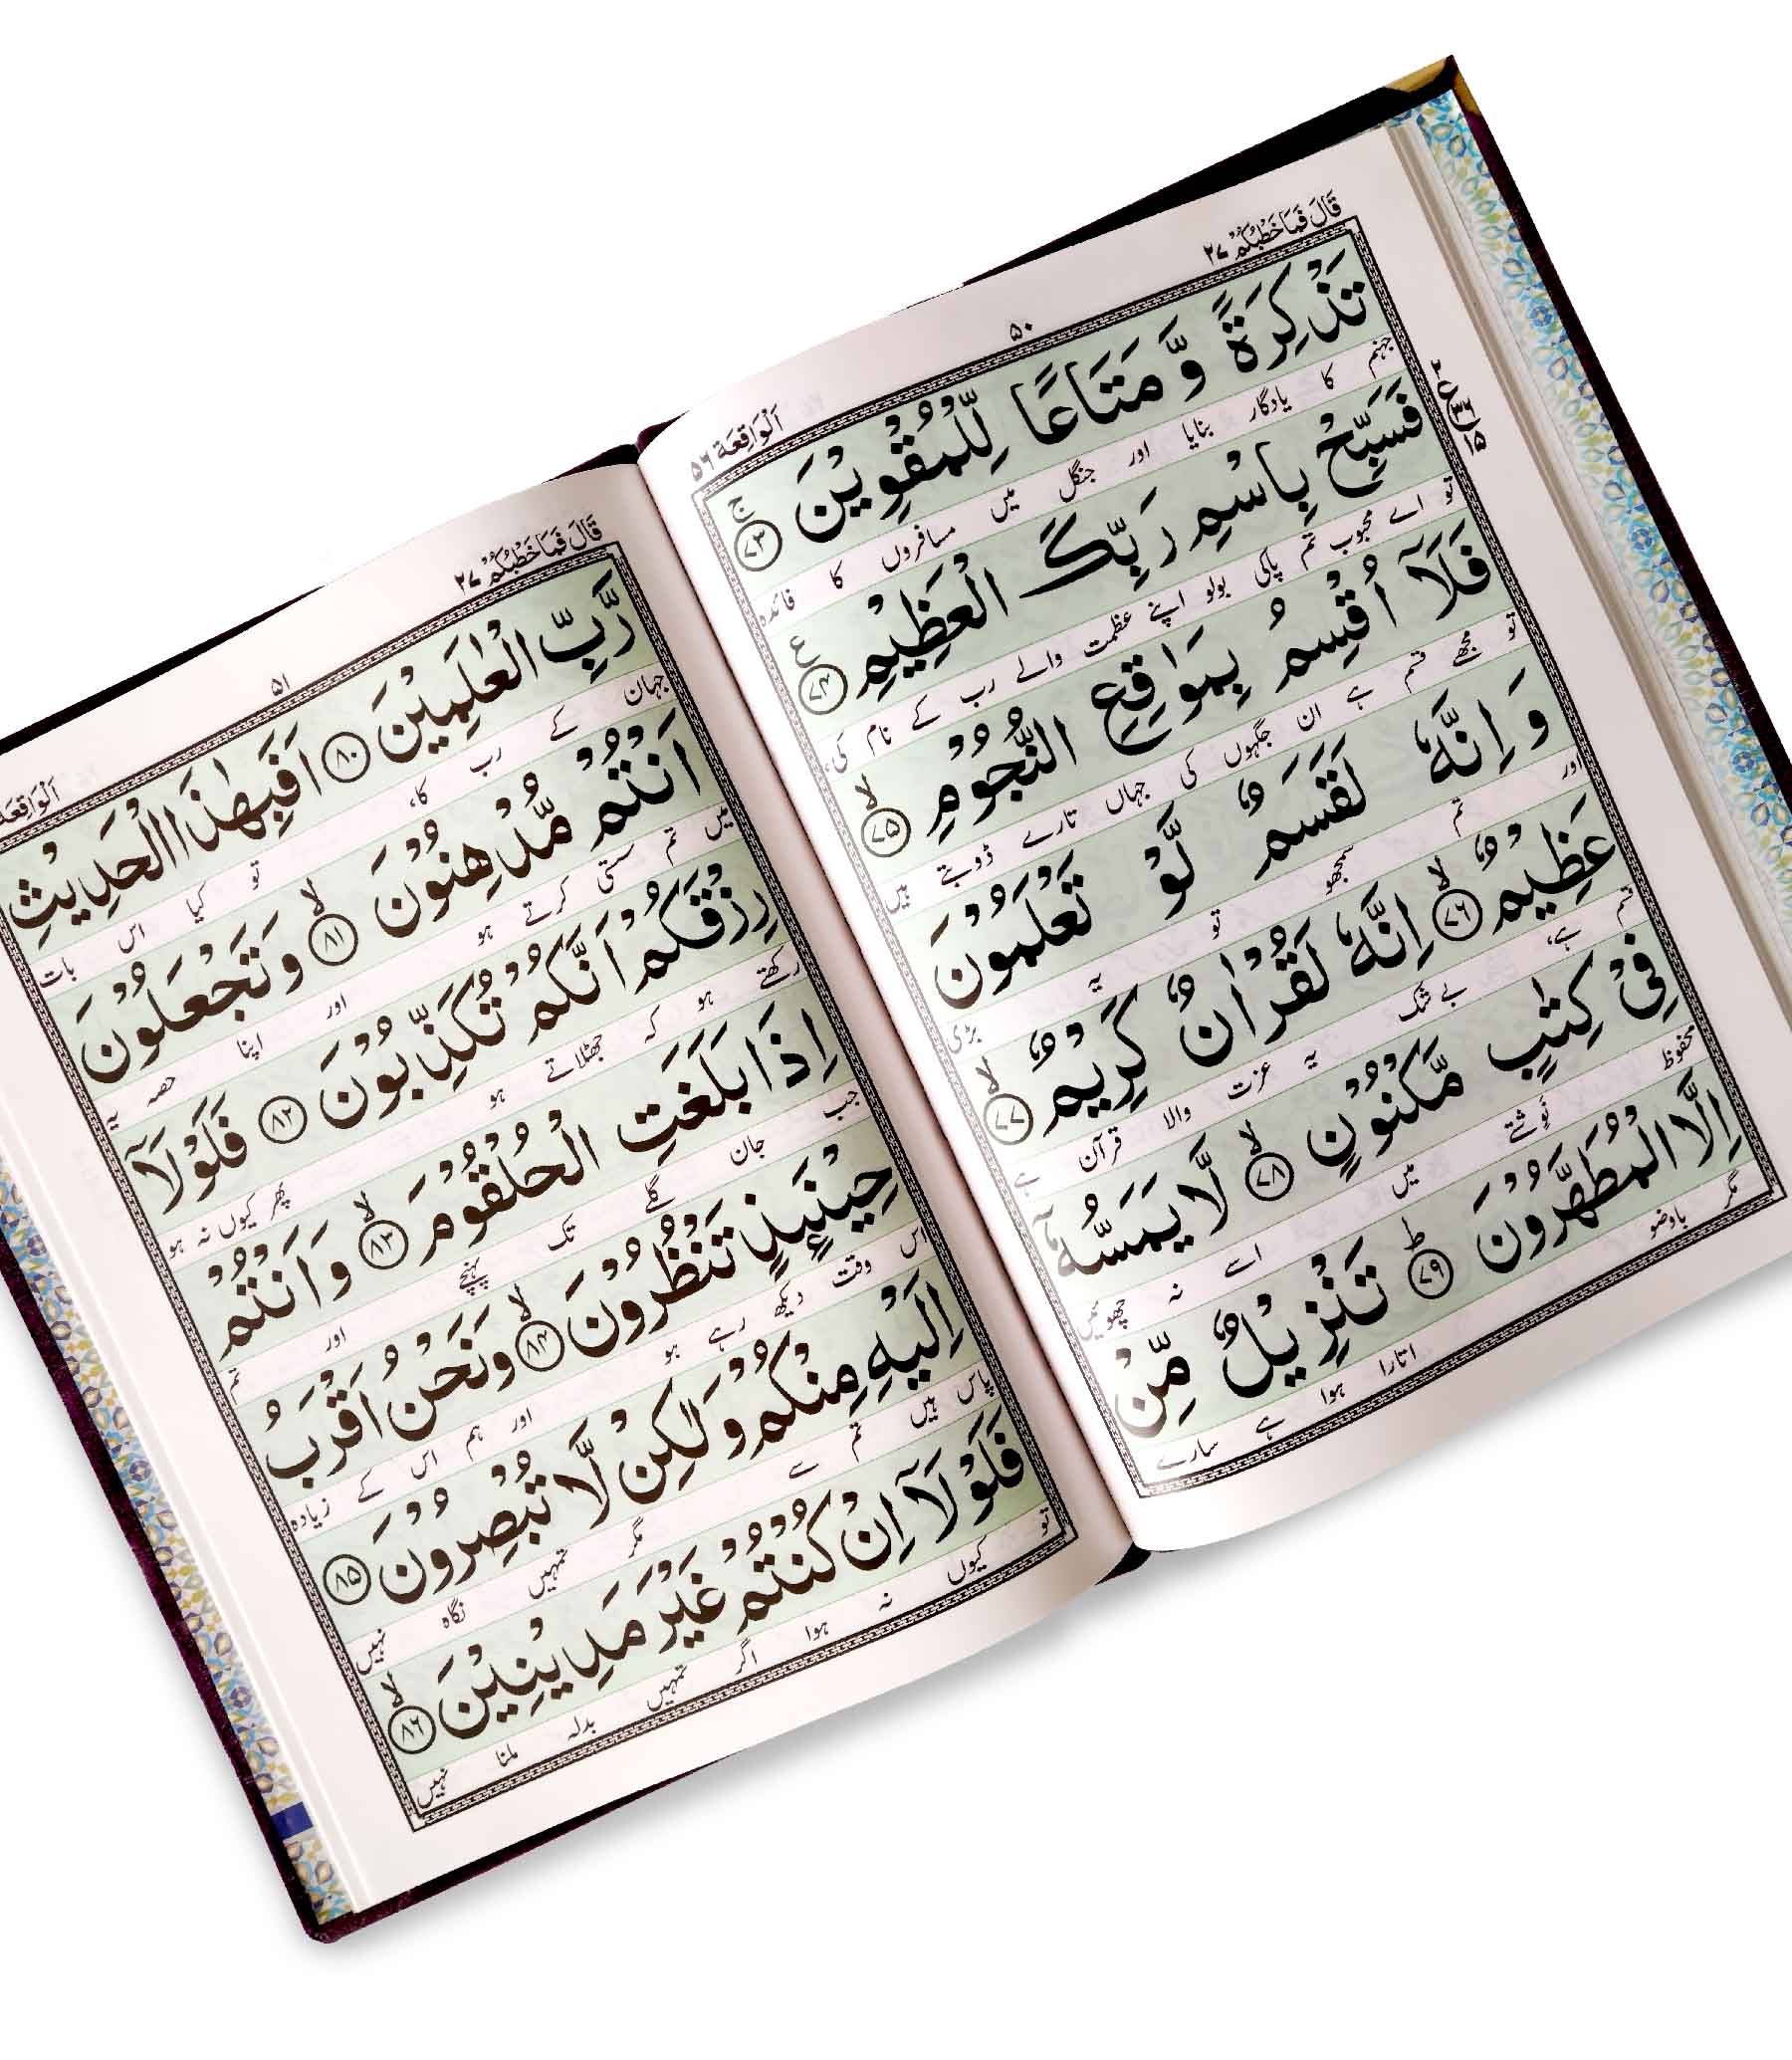 قَالَ فَمَا خَطْبُكُمْ ٢٧
٥٠
اَلْوَاقِعَة ٥٦
تَذْكِرَةً وَّ مَتَاعًا لِّلْمُقْوِيْنَ ۚ ﴿٧٣﴾
جہنم کا یادگار بنایا اور جنگل میں مسافروں کا فائدہ
فَسَبِّحْ بِاسْمِ رَبِّكَ الْعَظِيْمِ ﴿٧٤﴾ ع
تو اے محبوب تم پاکی بولو اپنے عظمت والے رب کے نام کی،
فَلَاۤ اُقْسِمُ بِمَوٰقِعِ النُّجُوْمِ ۙ ﴿٧٥﴾
تو مجھے قسم ہے ان جگہوں کی جہاں تارے ڈوبتے ہیں
وَ اِنَّهٗ لَقَسَمٌ لَّوْ تَعْلَمُوْنَ
اور تم سمجھو تو یہ بڑی
عَظِيْمٌ ۙ ﴿٧٦﴾ اِنَّهٗ لَقُرْاٰنٌ كَرِيْمٌ ۙ ﴿٧٧﴾
قسم ہے، بے شک یہ عزت والا قرآن ہے
فِىْ كِتٰبٍ مَّكْنُوْنٍ ۙ ﴿٧٨﴾ لَّا يَمَسُّهٗۤ
محفوظ نوشتے میں اسے نہ چھوئیں
اِلَّا الْمُطَهَّرُوْنَ ؕ ﴿٧٩﴾ تَنْزِيْلٌ مِّنْ
مگر باوضو اتارا ہوا ہے سارے
قَالَ فَمَا خَطْبُكُمْ ٢٧
٥١
اَلْوَاقِعَة
رَّبِّ الْعٰلَمِيْنَ ﴿٨٠﴾ اَفَبِهٰذَا الْحَدِيْثِ
جہان کے رب کا، تو کیا اس بات
اَنْتُمْ مُّدْهِنُوْنَ ۙ ﴿٨١﴾ وَ تَجْعَلُوْنَ
میں تم سستی کرتے ہو اور اپنا حصہ یہ
رِزْقَكُمْ اَنَّكُمْ تُكَذِّبُوْنَ ﴿٨٢﴾ فَلَوْلَاۤ
رکھتے ہو کہ جھٹلاتے ہو پھر کیوں نہ ہو
اِذَا بَلَغَتِ الْحُلْقُوْمَ ۙ ﴿٨٣﴾ وَ اَنْتُمْ
جب جان گلے تک پہنچے اور تم
حِيْنَئِذٍ تَنْظُرُوْنَ ۙ ﴿٨٤﴾ وَ نَحْنُ اَقْرَبُ
اس وقت دیکھ رہے ہو اور ہم اس کے زیادہ
اِلَيْهِ مِنْكُمْ وَ لٰكِنْ لَّا تُبْصِرُوْنَ ﴿٨٥﴾
پاس ہیں تم سے مگر تمہیں نگاہ نہیں
فَلَوْلَاۤ اِنْ كُنْتُمْ غَيْرَ مَدِيْنِيْنَ ۙ ﴿٨٦﴾
تو کیوں نہ ہوا اگر تمہیں بدلہ ملنا نہیں